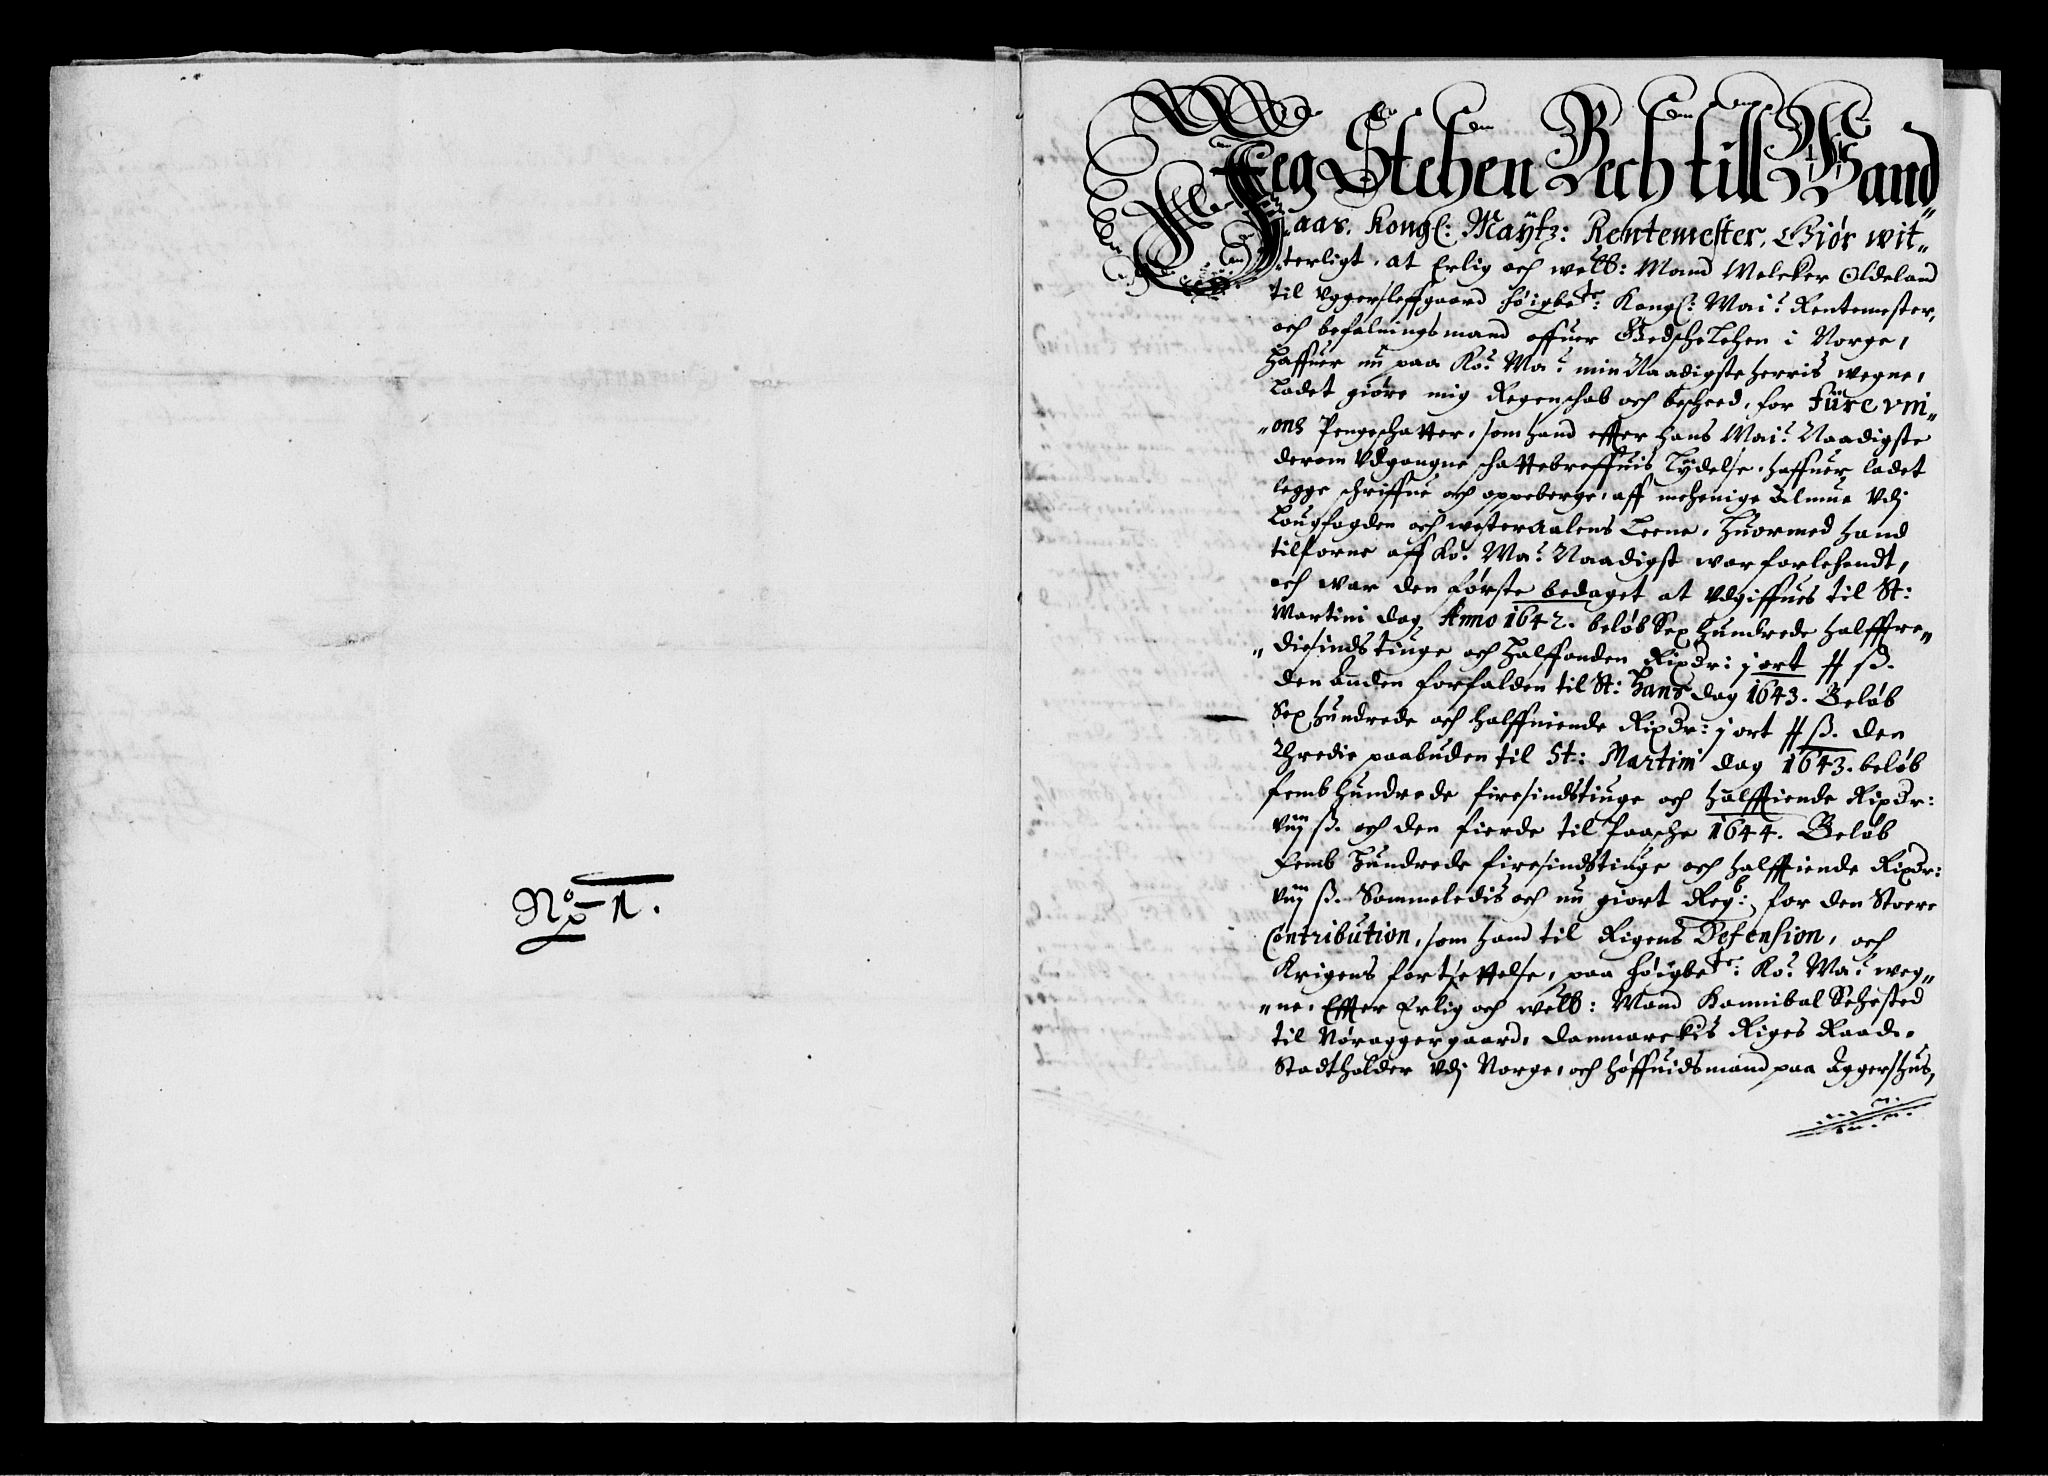 No 1.
Jeg Stehen Bech till Wand„
„aas, Kongl: Maÿtz: Rentemester, Giør wit„
„terligt, at Erlig och welb: Mand Meleker Oldeland
til Uggersleffgaard høigbete: Kongl: Mai: Rentemester,
och befalningsmand offuer Gedsche Lehen i Norge,
Haffuer nu paa Ko: Ma: min Naadigste Herris wegne,
Ladet giøre mig Regenschab och bescheed, for füre vni„
„ons Pengeschatter, som hand effter hans Mai: Naadigste
derom Udgangne schattebreffuis Lÿdelse, haffuer ladet
legge schriffue och oppeberge, aff mehenige Almue Udj
Lougfogden och westeraalens Leene, Huormed hand
tilforne aff Ko: Ma: Naadigst war forlehendt,
och war den første bedaget at Udgiffues til St:
Martini dag Anno 1642. beløb Sex Hundrede halfffre„
„diesindstiuge och Halffanden Rixdr: j ort ß.
den Anden forfalden til St: Hans dag 1643. Beløb
Sex hundrede och halffniende Rixdr: j ort ß. den
Thredie paabuden til St: Martini dag 1643. beløb
femb hundrede firesindstiuge och halfftiende Rixdr:
viij ß. och den fierde til Paasche 1644. Beløb
femb Hundrede firesindstiuge och halfftiende Rixdr:
viij ß. Sammeledis och nu giort Regb: for den Stoere
Contribution, som hand til Rigens Defension, och
Krigens fortsettelse, paa høigbete: Ko: Ma: weg„
„ne, Effter Erlig och welb: Mand Hannibal Sehested
til Nøraggergaard, Danmarckis Riges Raad,
Stadtholder Udj Norge, och høffuidsmand paa Aggershus,